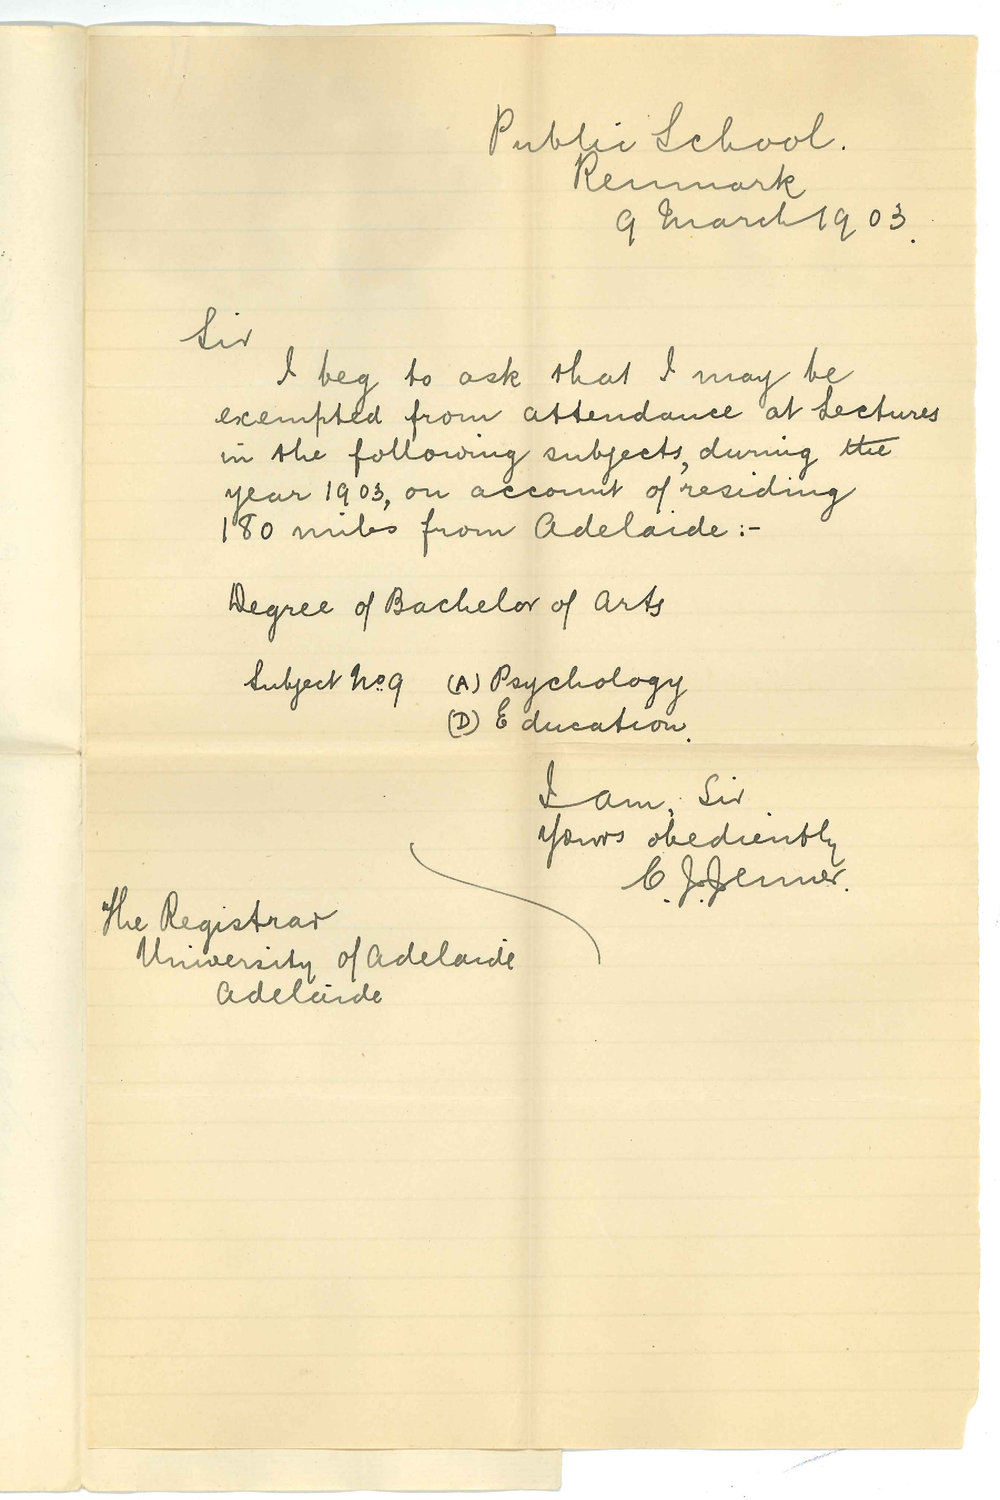 Public School.
Renmark
9 March 1903.
Sir
I beg to ask that I may be
exempted from attendance at Lectures
in the following subjects, during the
year 1903, on account of residing
180 miles from Adelaide :-
Degree of Bachelor of Arts
Subject No. 9 (A) Psychology
(D) Education.
I am, Sir
Yours obediently
C. J. Jenner.
The Registrar
University of Adelaide
Adelaide